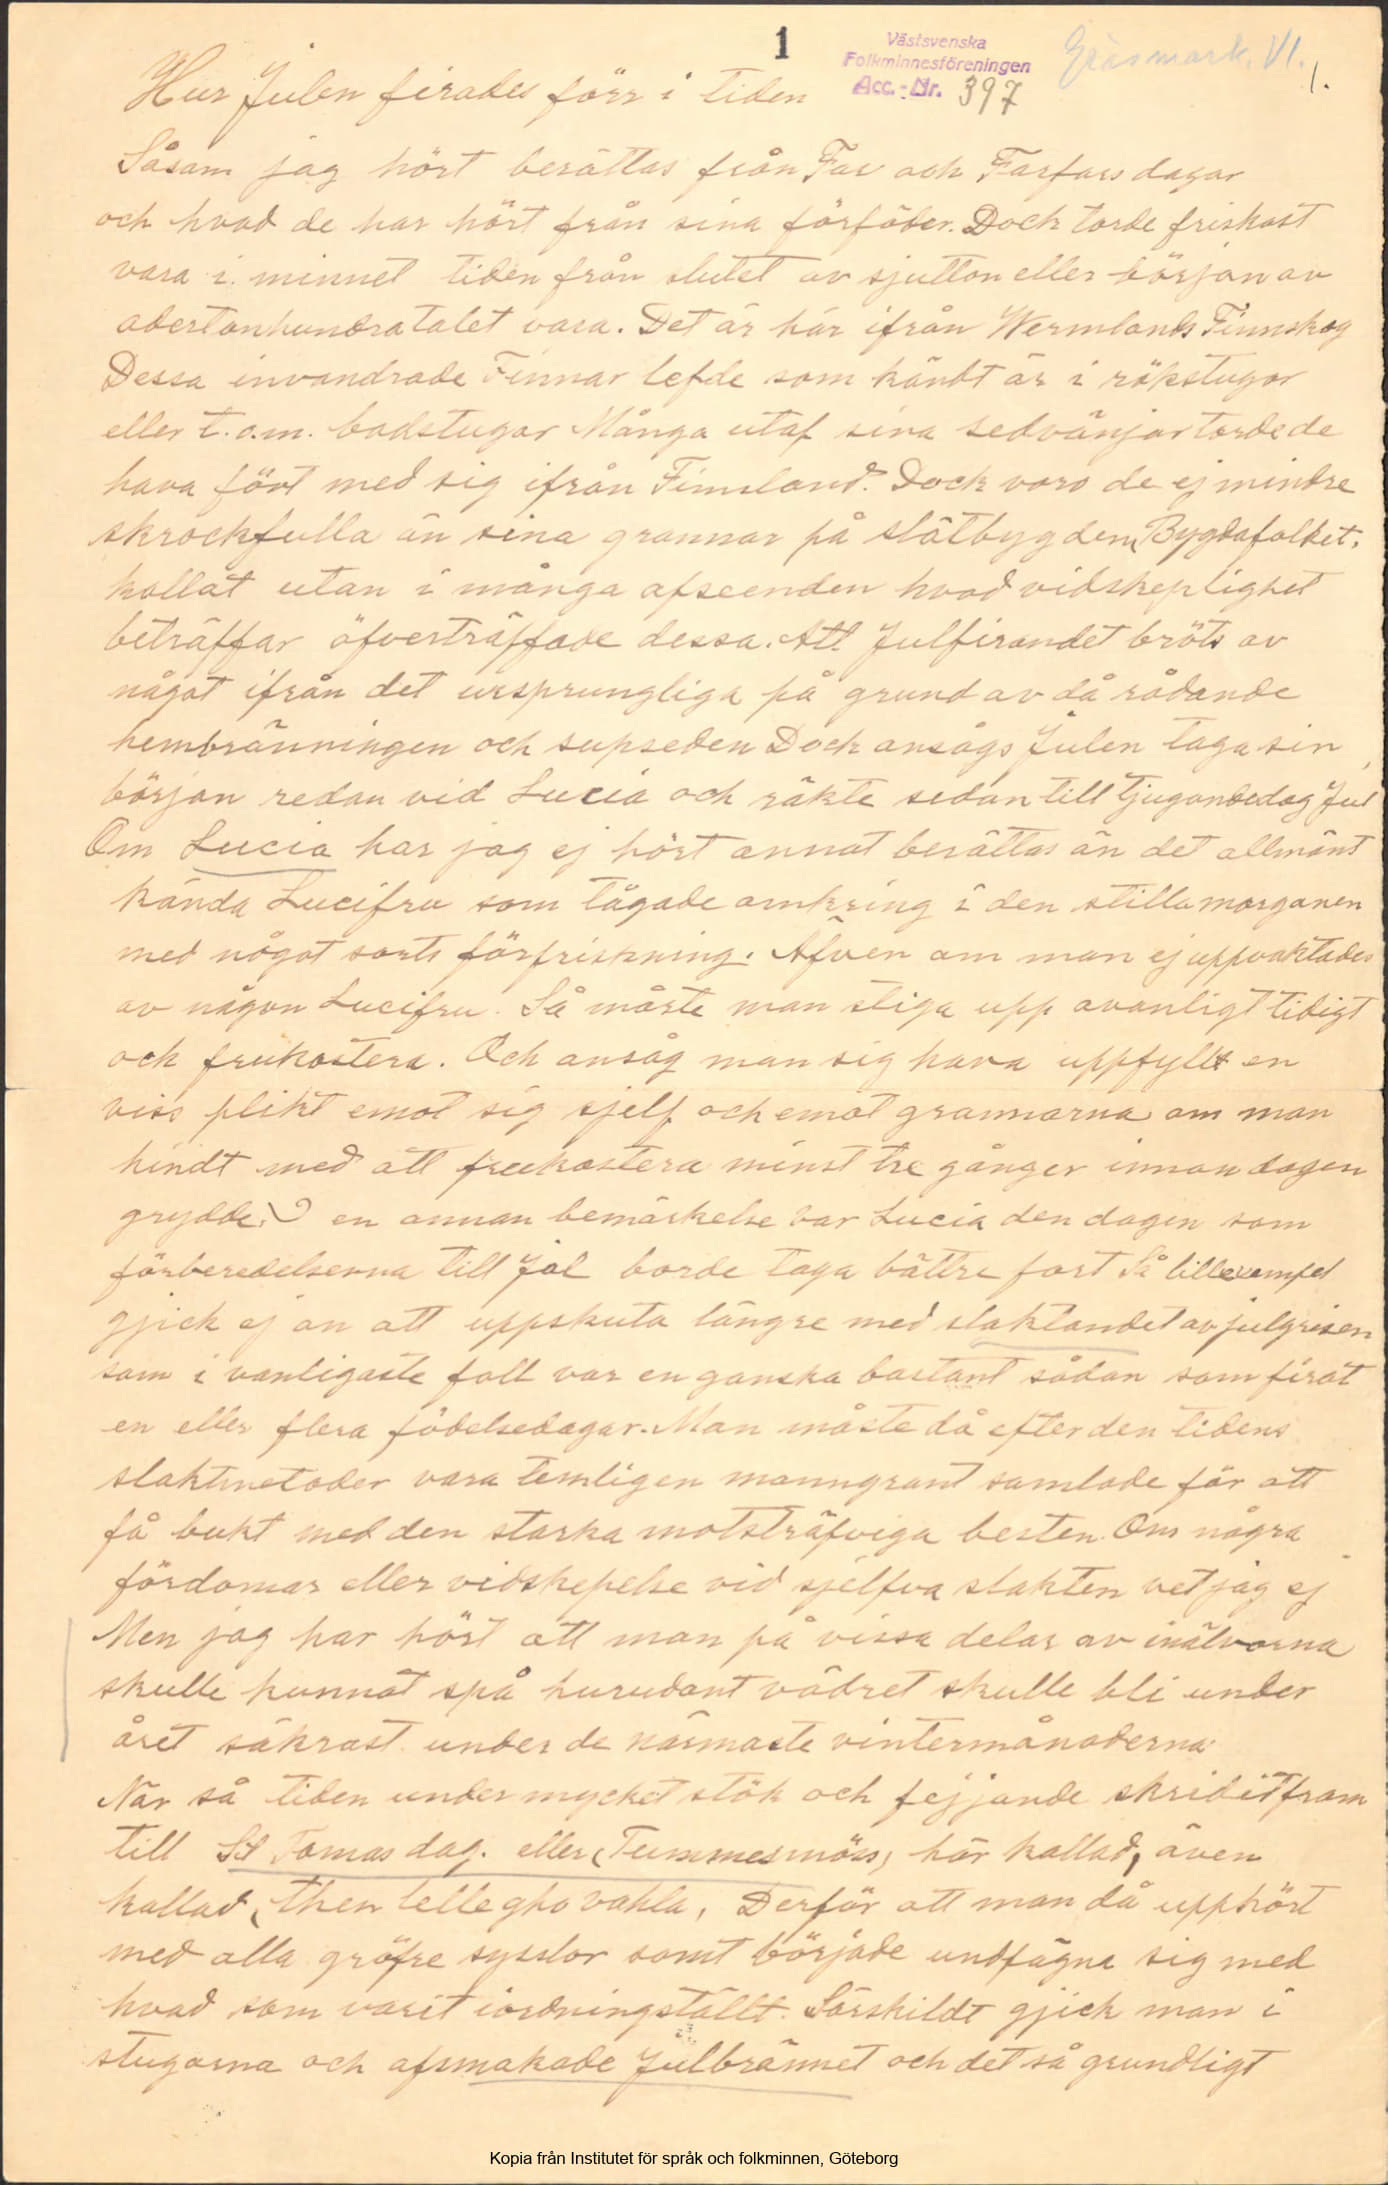 1
Västsvenska
Folkminnesföreningen
Acc.-Nr. 397
Gräsmark. VI.
1.
Hur Julen firades förr i tiden
Såsom jag hört berättas från Far och Farfars dagar
och hvad de har hört från sina förfäder. Dock torde friskast
vara i minnet tiden från slutet av sjutton eller början av
adertonhundratalet vara. Det är här ifrån Wermlands Finnskog
Dessa invandrade Finnar lefde som kändt är i rökstugor
eller t.o.m. badstugor Många utaf sina sedvänjor torde de
hava fört med sig ifrån Finnland. Dock voro de ej mindre
skrockfulla än sina grannar på slätbygden, Bygdafolket,
kallat utan i många afseenden hvad vidskeplighet
beträffar öfverträffade dessa. Att Julfirandet bröts av
något ifrån det ursprungliga på grund av då rådande
hembränningen och supseden Dock ansågs Julen taga sin
början redan vid Lucia och räkte sedan till Tjugondedag Jul
Om Lucia har jag ej hört annat berättas än det allmänt
kända Lucifru som tågade omkring i den stilla morgonen
med något sorts förfriskning. Äfven om man ej uppvaktades
av någon Lucifru. Så måste man stiga upp ovanligt tidigt
och frukostera. Och ansåg man sig hava uppfyllt en
viss plikt emot sig sjelf och emot grannarna om man
hindt med att frukostera minst tre gånger innan dagen
grydde. I en annan bemärkelse var Lucia den dagen som
förberedelserna till Jol borde taga bättre fart Så till exempel
gjick ej an att uppskuta längre med slaktandet av julgrisen
som i vanligaste fall var en ganska bastant sådan som firat
en eller flera födelsedagar. Man måste då efter den tidens
slaktmetoder vara temligen manngrant samlade för att
få bukt med den starka motsträfviga besten. Om några
fördomar eller vidskepelse vid sjelfva slakten vet jag ej
Men jag har hört att man på vissa delar av inälvorna
skulle kunnat spå hurudant vädret skulle bli under
året säkrast under de närmaste vintermånaderna.
När så tiden under mycket stök och fejjande skridit fram
till St Tomas dag. eller (Tummesmöss) här kallad, även
kallad, then lelle gho vahla, Derför att man då upphört
med alla gröfre sysslor samt började undfägna sig med
hvad som varit iordningställt. Särskildt gjick man i
stugorna och afsmakade Julbrännet och det så grundligt
Kopia från Institutet för språk och folkminnen, Göteborg